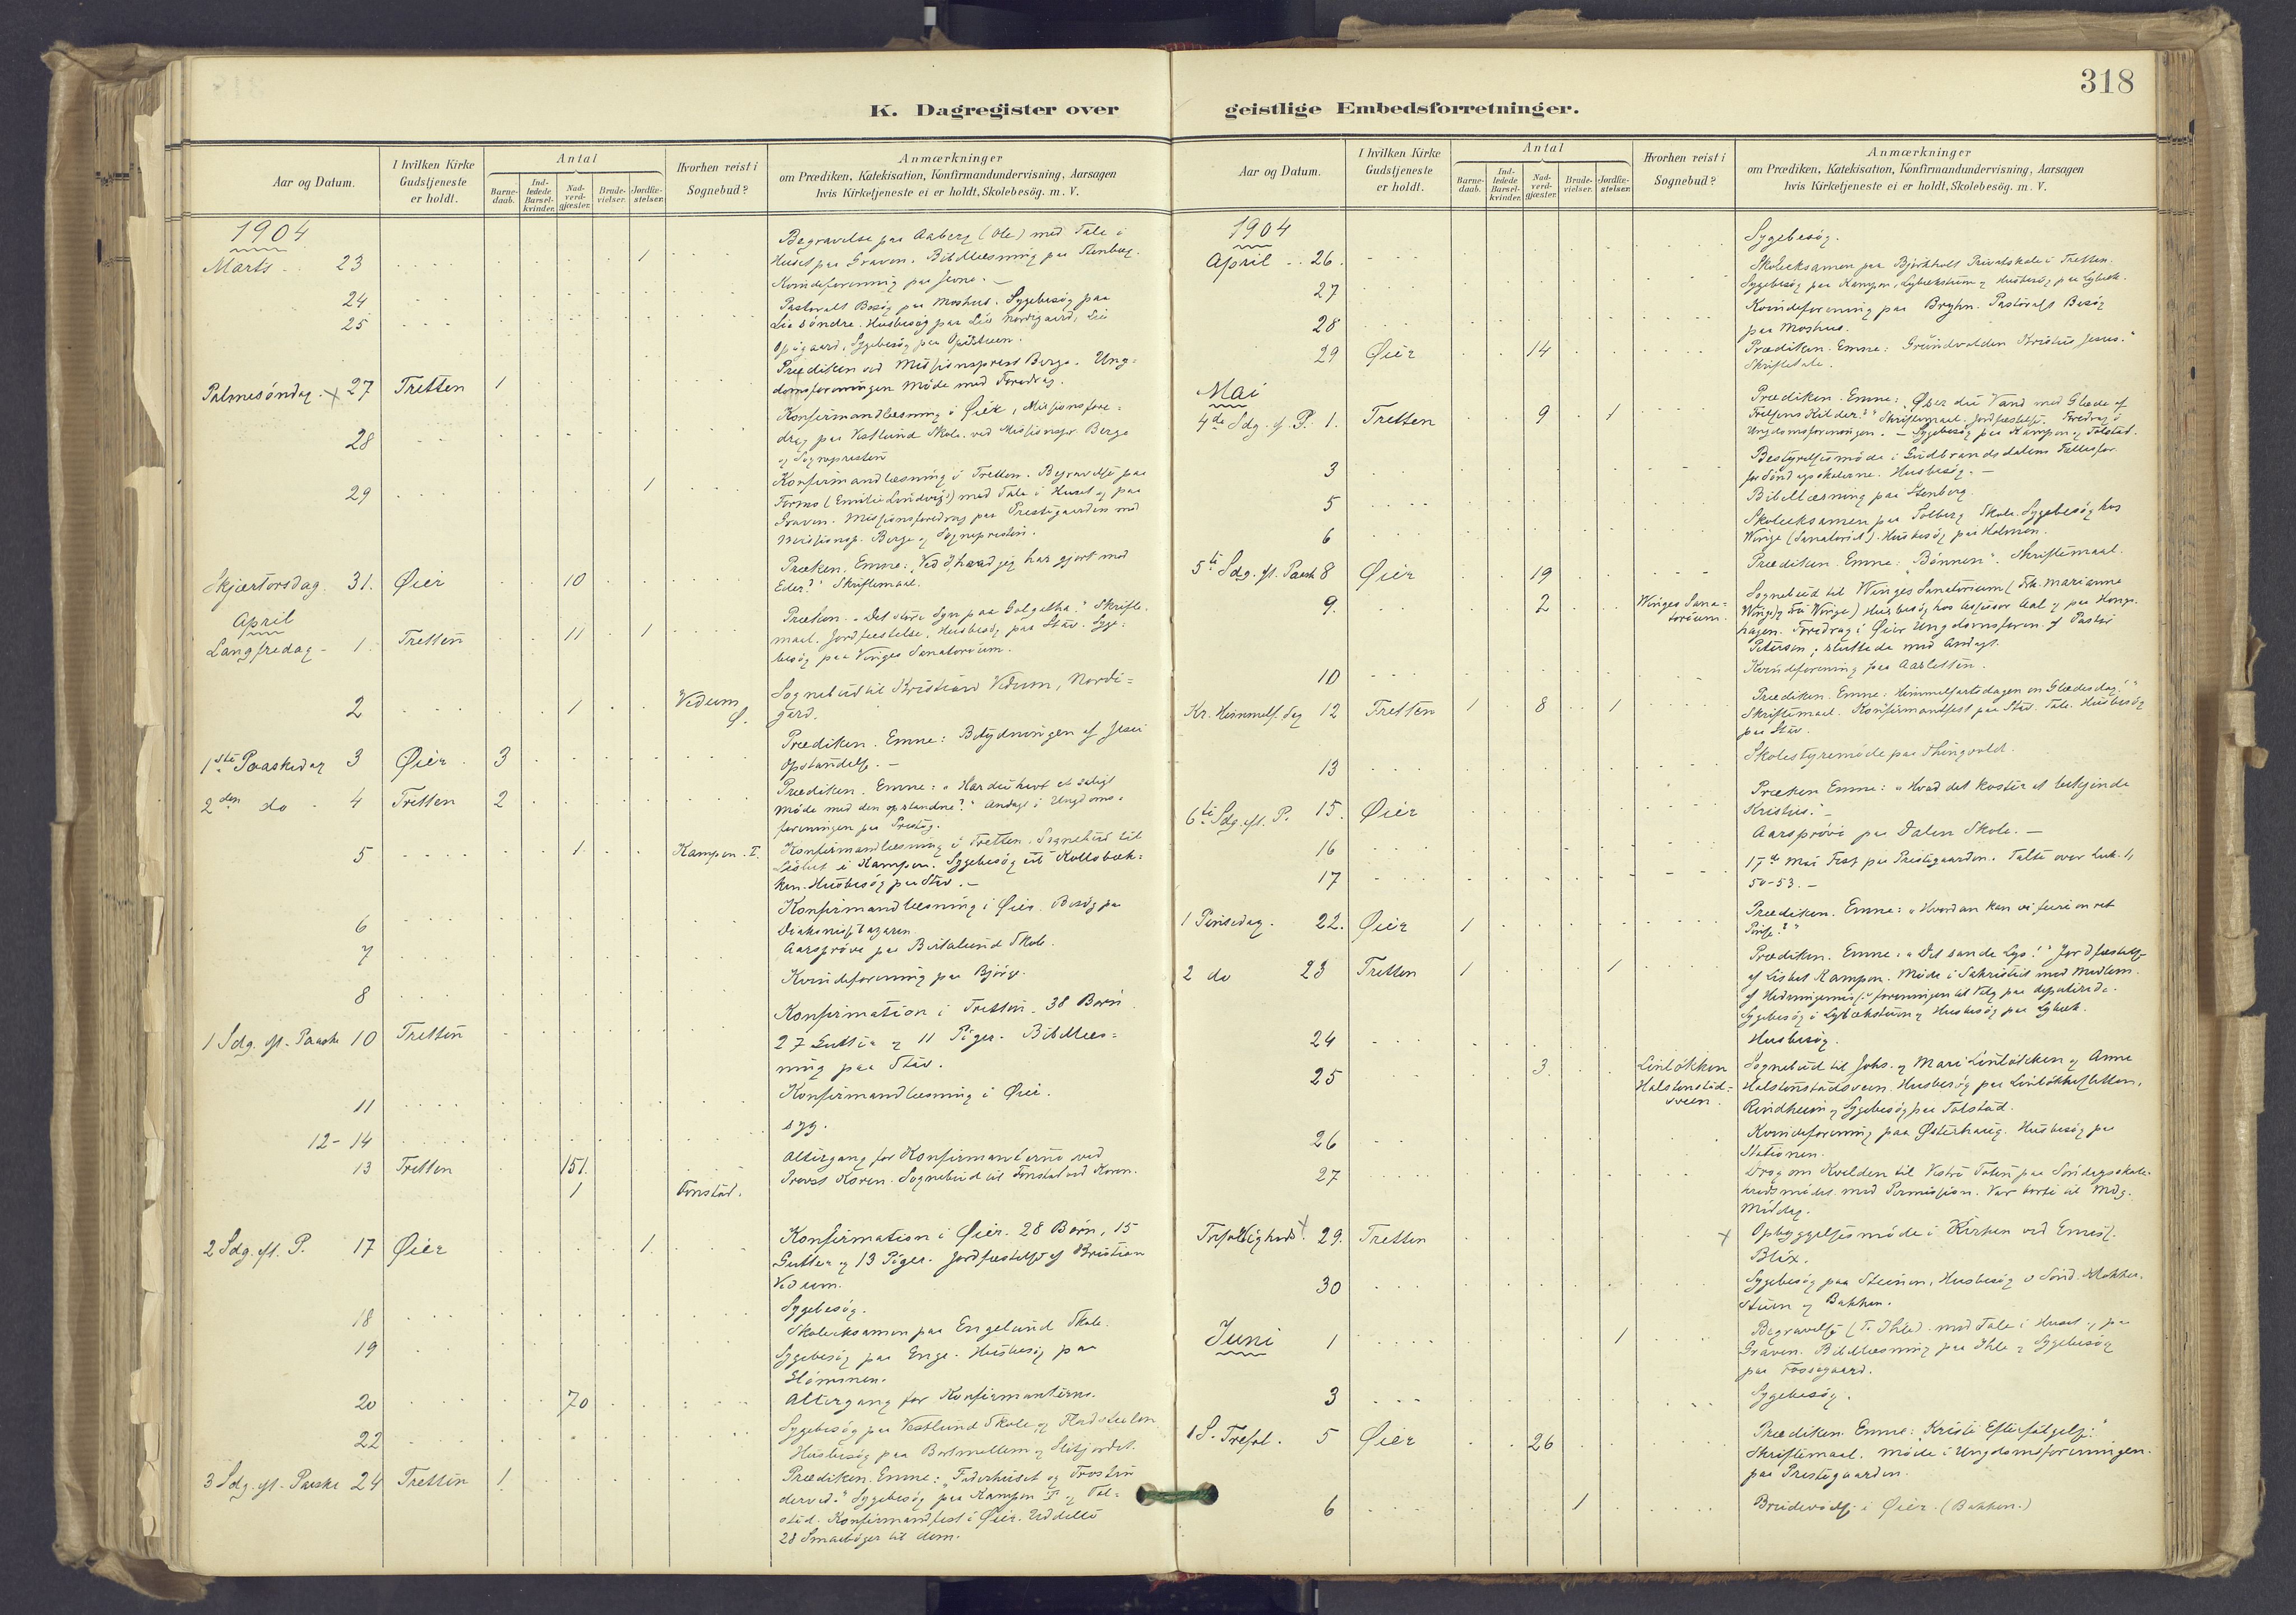 318
K. Dagregister over
geistlige Embedsforretninger.
Aar og Datum.
I hvilken Kirke Gudstjeneste er holdt.
Antal
Barnedaab.
Indledede Barselkvinder.
Nadverdgjæster.
Brudevielser.
Jordfæstelser.
Hvorhen reist i Sognebud?
Anmærkninger
om Prædiken, Katekisation, Konfirmandundervisning, Aarsagen
hvis Kirketjeneste ei er holdt, Skolebesög. m. V.
1904
Marts 23 1 Begravelse paa Aaberg (Ole) med Tale i
Huset paa Graven. Bibellæsning paa Stenberg.
24 Kvindeforening paa
25 Pastoralt Besög paa Moshus. Sygebesög paa
Lie söndre. Husbesög paa Lie Nordigaard, Lie
Opigaard, Sygebesög paa
Palmesöndag x 27 Tretten 1 Prædiken ved Missionsprest Berge. Ung=
domsforeningen Möde med Foredrag.
28 Konfirmandlæsning i Öier, Missionsfore=
drag paa Vestlund Skole ved Missionspr Berge
og Sognepresten
29 1 Konfirmandlæsning i Tretten. Begravelse paa
Formo (Emilie Lundvigs) med Tale i Huset og paa
Graven. Missionsforedrag paa Prestegaarden ved
Missionsp. Berge og Sognepresten.
Skjærtorsdag 31. Øier 10 Præken. Emne: "Ved I, hvad jeg har gjort mod
Eder?" Skriftemaal.
April
Langfredag - 1. Tretten 11 1 Præken. "Det store Syn paa Golgatha." Skrifte-
maal. Jordfæstelse, Husbesög paa Stav. Syge=
besög paa Vinges Sanatorium.
2 1 Vedum Ø. Sognebud til Kristian Vedum, Nordi=
gard.
1ste Paaskedag 3 Øier 3 Prædiken. Emne: Betydningen af Jesu
Opstandelse. -
2den do - 4 Tretten 2 Prædiken. Emne: "Har du havt et saligt
Möde med den opstandne?" Andagt i Ungdoms=
foreningen paa Prestg.
5 1 Kampen. T. Konfirmandlæsning i Tretten. Sognebud til
Lisbet i Kampen. Sygebesög
Husbesög paa Stav. -
6 Konfirmandlæsning i Öier. Besög paa
7 Aarspröve paa Birkelund Skole.
8 Kvindeforening paa Bjørge.
1 Sdg. eft. Paaske 10 Tretten Konfirmation i Tretten. 38 Børn
27 Gutter og 11 Piger. Bibellæs=
ning paa Stav.
11 Konfirmandlæsning i Öier.
12-14 syg.
13 Tretten 151. Altergang for Konfirmanterne ved
1 Fonstad. Provst Koren. Sognebud til Fonstad ved Koren.
2 Sdg. eft. P. 17 Øier 1. Konfirmation i Øier. 28 Børn, 15
Gutter og 13 Piger. Jordfæstelse af Kristian
Vedum.
18 Sygebesög.
19 Skoleeksamen paa Engelund Skole.
Sygebesög paa Enge. Husbesög paa
20 70 Altergang for Konfirmanterne.
22 Sygebesög paa Vestlund Skole og
Husbesög paa
3 Sdg. eft. Paaske 24 Tretten 1. Prædiken. Emne: "Faderhuset og Trosten
derved." Sygebesög paa Kampen T og Tol=
stad. Konfirmandfest i Øier. Uddelte
28 Smaabøger til dem.
Aar og Datum.
I hvilken Kirke Gudstjeneste er holdt.
Antal
Barnedaab.
Indledede Barselkvinder.
Nadverdgjæster.
Brudevielser.
Jordfæstelser.
Hvorhen reist i Sognebud?
Anmærkninger
om Prædiken, Katekisation, Konfirmandundervisning, Aarsagen
hvis Kirketjeneste ei er holdt, Skolebesög. m. V.
1904
April 26. Sygebesög.
27 Skoleeksamen paa Björkholt Privatskole i Tretten.
Sygebesög paa Kampen, Lybækstuen og Husbesög paa Lybæk.
28 Kvindeforening paa Bryhn. Pastoralt Besög
paa Moshus.
29 Øier 14 Prædiken. Emne: "Grundvolden Kristus Jesus."
Skriftetale.
Mai
4de Sdg. e. P. 1. Tretten 9 1 Prædiken. Emne: "Øser du Vand med Glæde af
Frelsens Kilder?" Skriftemaal. Jordfæstelse. Foredrag i
Ungdomsforeningen. - Sygebesög paa Kampen og Tolstad.
3 Bestyrelsesmöde i Gudbrandsdalens Fællesfor.
for Söndagsskolerne. Husbesög. -
5 Bibellæsning paa Stenberg.
6 Skoleeksamen paa Solberg Skole. Sygebesög hos
Vinge (Sanatoriet). Husbesög paa Holmen.
5te Sdg. eft. Paask 8 Øier 19 Prædiken. Emne: "Bønnen". Skriftemaal.
9. 2 Winges Sana=
torium. Sognebud til Winges Sanatorium (Frk. Marianne
Winge og Fru Winge) Husbesög hos Assessor Aal og paa Konge-
hagen. Foredrag i Øier Ungdomsforen. af Pastor
Petersen; sluttede med Andagt.
10 Kvindeforening paa Aasletten.
Kr. Himmelf. dag 12 Tretten 1 8 1 Prædiken. Emne: "Himmelfartsdagen en Glædesdag."
Skriftemaal. Konfirmandfest paa Stav. Tale. Husbesög
paa Stav.
13 Skolestyremöde paa Thingvold.
6te Sdg. eft. P. 15. Øier Præken Emne: "Hvad det koster at bekjende
Kristus". -
16 Aarspröve paa Dalen Skole. -
17 17de Mai Fest paa Prestegaarden. Talte over Luk. 1,
50-53. -
1 Pinsedag. 22. Øier 1 Prædiken. Emne: "Hvordan kan vi feire en ret
Pinse?"
2 do 23 Tretten 1 1 Prædiken. Emne: "Det sande Lys!" Jordfæstelse
af Lisbet Kampen. Möde i Sakristiet med Medlem.
af Hedningemiss. foreningen til Valg paa deputerede.
Sygebesög i Lybækstuen og Husbesög paa Lybæk.
24 Husbesög.
25 3. Linløkken
Halstenstad=
sveen. Sognebud til Johs. og Mari Linløkken og Anne
Halstenstadsveen. Husbesög paa Linløkkesletten,
Rindheim og Sygebesög paa Tolstad.
26 Kvindeforening paa Østerhaug. Husbesög paa
Stationen.
27 Drog om Kvelden til Vestre Toten paa Söndagsskole-
kredsmödet med Permission. Var borte til Mdg.
Middag.
Trefoldigheds x 29. Tretten x Opbyggelsesmöde i Kirken ved Emiss.
Blix.
30 Sygebesög paa Steinen, Husbesög
og Bakken.
Juni 1 1 Begravelse (T. Ihle) med Tale i Huset og paa
Graven. Bibellæsning paa Ihle og Sygebesög
paa Fossegaard.
3 Sygebesög.
1 S. Trefol. 5 Øier 26 Prædiken. Emne: "Kristi Efterfølgelse."
Skriftemaal. Möde i Ungdomsforeningen.
paa Prestegaarden.
6 1 Brudevielse i Øier. (Bakken.)